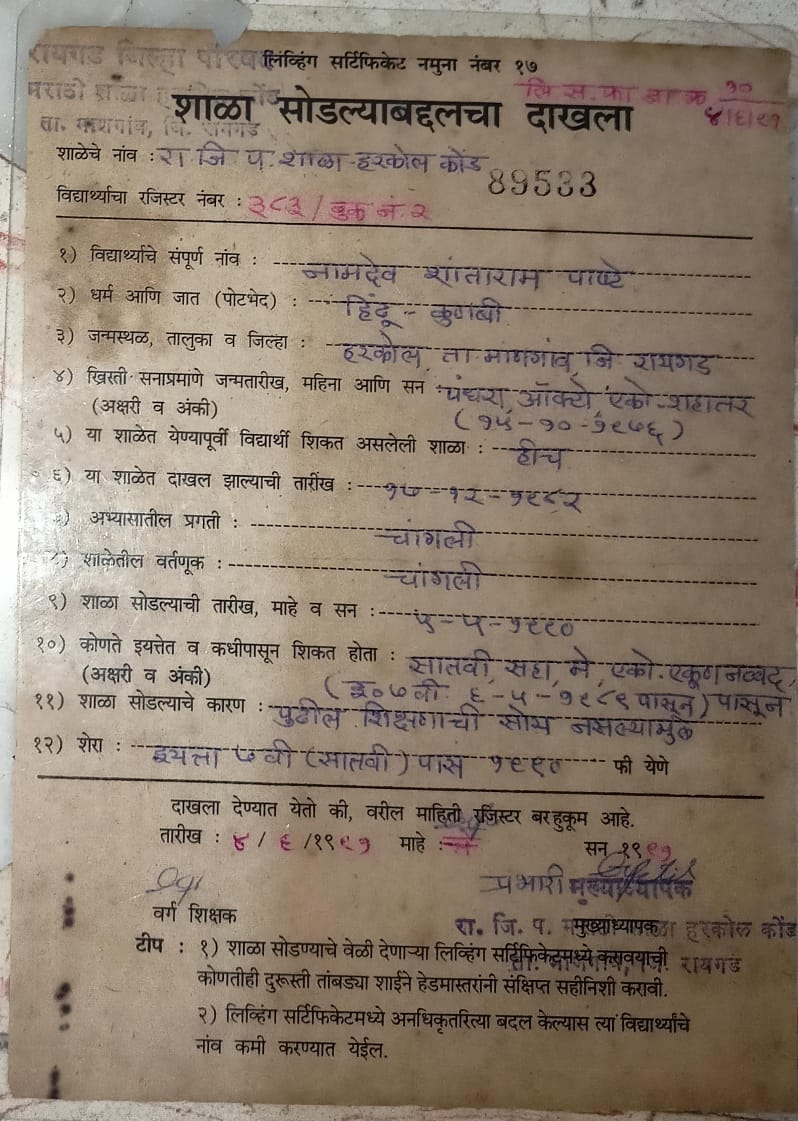 रायगड जिल्हा परिषद लिव्हिंग सर्टिफिकेट नमुना नंबर १७
मराठी शाळा हरकोल कोंड लि. स. फा. जा. क्र १०
शाळा सोडल्याबद्दलचा दाखला ४/६/९१
ता. माणगांव, जि. रायगड
शाळेचे नांव : रा जि प. शाळा हरकोल कोंड
89533
विद्यार्थ्याचा रजिस्टर नंबर : ३८३ / बुक नं. २
१) विद्यार्थ्याचे संपूर्ण नांव : नामदेव शांताराम पाष्टे
२) धर्म आणि जात (पोटभेद) : हिंदू - कुणबी
३) जन्मस्थळ, तालुका व जिल्हा : हरकोल, ता. माणगांव, जि. रायगड
४) ख्रिस्ती सनाप्रमाणे जन्मतारीख, महिना आणि सन : पंधरा, ऑक्टो, एको. शहात्तर
(अक्षरी व अंकी) (१५-१०-१९७६)
५) या शाळेत येण्यापूर्वी विद्यार्थी शिकत असलेली शाळा : हीच
६) या शाळेत दाखल झाल्याची तारीख : १७-१२-१९८२
७) अभ्यासातील प्रगती : चांगली
८) शाळेतील वर्तणूक : चांगली
९) शाळा सोडल्याची तारीख, माहे व सन : ५-५-१९९०
१०) कोणते इयत्तेत व कधीपासून शिकत होता : सातवी, सहा, मे, एको. एकूणनव्वद,
(अक्षरी व अंकी) (इ० ७वी ६-५-१९८९ पासून) पासून
११) शाळा सोडल्याचे कारण : पुढील शिक्षणाची सोय नसल्यामुळे
१२) शेरा : इयत्ता ७ वी (सातवी) पास १९९० फी येणे
दाखला देण्यात येतो की, वरील माहिती रजिस्टर बरहुकूम आहे.
तारीख : ४ / ६ /१९९१ माहे : सन १९९१
प्रभारी मुख्याध्यापक
वर्ग शिक्षक मुख्याध्यापक
रा. जि. प. मराठी शाळा हरकोल कोंड
ता. माणगांव, जि. रायगड
टीप : १) शाळा सोडण्याचे वेळी देणाऱ्या लिव्हिंग सर्टिफिकेटमध्ये करावयाची
कोणतीही दुरूस्ती तांबड्या शाईने हेडमास्तरांनी संक्षिप्त सहीनिशी करावी.
२) लिव्हिंग सर्टिफिकेटमध्ये अनधिकृतरित्या बदल केल्यास त्या विद्यार्थ्यांचे
नांव कमी करण्यात येईल.